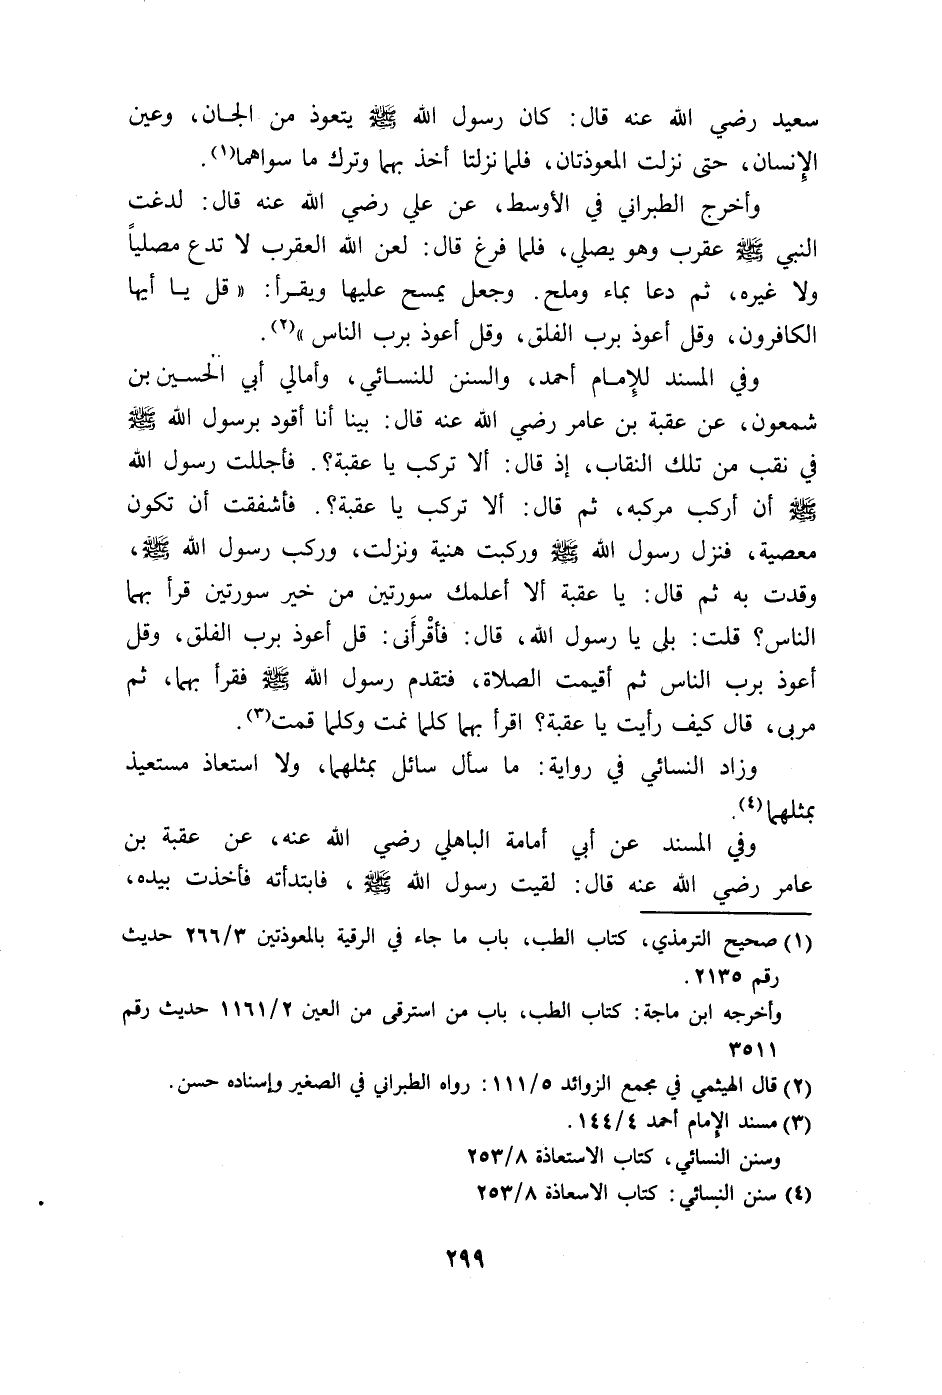 سعيد رضي الله عنه قال: كان رسول الله ﷺ يتعوذ من الجـان، وعين
الإنسان، حتى نزلت المعوذتان، فلما نزلتا أخذ بهما وترك ما سواهما(١).
وأخرج الطبراني في الأوسط، عن علي رضي الله عنه قال: لدغت
النبي ﷺ عقرب وهو يصلي، فلما فرغ قال: لعن الله العقرب لا تدع مصلياً
ولا غيره، ثم دعا بماء وملح. وجعل يمسح عليها ويقـرأ: « قل يـا أيها
الكافرون، وقل أعوذ برب الفلق، وقل أعوذ برب الناس »(٢).
وفي المسند للإمـام أحمد، والسنن للنسـائي، وأمالي أبي الحسين بن
شمعون، عن عقبة بن عامر رضي الله عنه قال: بينا أنا أقود برسول الله ﷺ
في نقب من تلك النقاب، إذ قال: ألا تركب يا عقبة؟. فأجللت رسول الله
ﷺ أن أركب مركبه، ثم قال: ألا تركب يا عقبة؟. فأشفقت أن تكون
معصية، فنزل رسول الله ﷺ وركبت هنية ونزلت، وركب رسول الله ﷺ،
وقدت به ثم قال: يا عقبة ألا أعلمك سورتين من خير سورتين قرأ بهما
الناس؟ قلت: بلى يا رسول الله، قال: فأقْرأَنى: قل أعوذ برب الفلق، وقل
أعوذ برب الناس ثم أقيمت الصلاة، فتقدم رسول الله ﷺ فقرأ بهما، ثم
مربى، قال كيف رأيت يا عقبة؟ اقرأ بهما كلما نمت وكلما قمت(٣).
وزاد النسائي في رواية: ما سأل سائل بمثلهما، ولا استعاذ مستعيذ
بمثلهما(٤).
وفي المسند عن أبي أمامة الباهلي رضي الله عنه، عن عقبة بن
عامر رضي الله عنه قال: لقيت رسول الله ﷺ، فابتدأته فأخذت بيده،
(١) صحيح الترمذي، كتاب الطب، باب ما جاء في الرقية بالمعوذتين ٢٦٦/٣ حديث
رقم ٢١٣٥.
وأخرجه ابن ماجة: كتاب الطب، باب من استرقى من العين ١١٦١/٢ حديث رقم
٣٥١١
(٢) قال الهيثمي في مجمع الزوائد ١١١/٥: رواه الطبراني في الصغير وإسناده حسن.
(٣) مسند الإمام أحمد ١٤٤/٤.
وسنن النسائي، كتاب الاستعاذة ٢٥٣/٨
(٤) سنن النسائي: كتاب الاسعاذة ٢٥٣/٨
٢٩٩